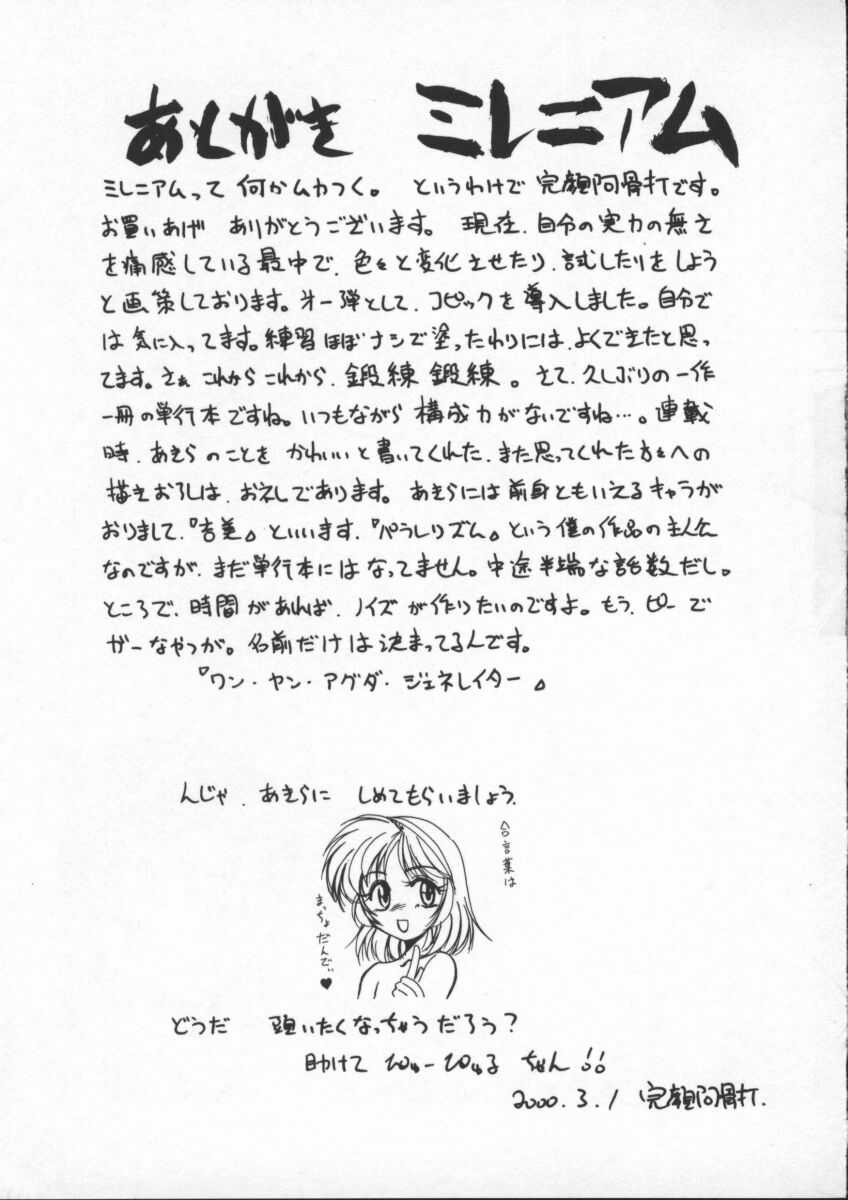 あとがき ミレニアム
ミレニアムって何かムカつく。 というわけで 完顔阿骨打です。
お買いあげ ありがとうございます。 現在、自分の実力の無さ
を痛感している最中で、色々と変化させたり、試したりをしよう
と画策しております。オ一弾として、コピックを導入しました。自分で
は気に入ってます。練習ほぼナシで塗ったわりには、よくできたと思っ
てます。さぁ これから これから、鍛練 鍛練。さて、久しぶりの一作
一冊の単行本ですね。いつもながら 構成力がないですね…。連載
時、あきらのことを かわいいと書いてくれた、また思ってくれた方々への
描きおろしは、おえしであります。あきらには前身ともいえるキャラが
おりまして、『吉美』といいます、『パラレリズム』という僕の作品の主人公
なのですが、まだ単行本にはなってません。中途半端な話数だし。
ところで、時間があれば、ノイズが作りたいのですよ。もう、ピーで
ガーなやつが。名前だけは決まってるんです。
『ワン・ヤン・アグダ・ジェネレイター』
んじゃ、あきらに しめてもらいましょう。
合言葉は
まっちょだんでぃ♥
どうだ 頭いたくなっちゃうだろう?
助けて ひゅーひゅる ちゃん!!
2000.3.1 完顔阿骨打.